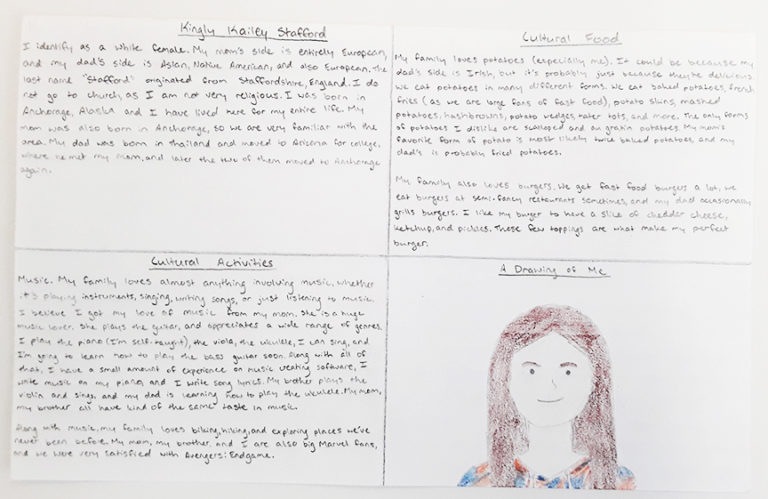 Kingly Kailey Stafford
I identify as a white female. My mom's side is entirely European,
and my dad's side is Asian, Native American, and also European. The
last name "Stafford" originated from Staffordshire, England. I do
not go to church, as I am not very religious. I was born in
Anchorage, Alaska and I have lived here for my entire life. My
mom was also born in Anchorage, so we are very familiar with the
area. My dad was born in Thailand and moved to Arizona for college,
where he met my mom, and later the two of them moved to Anchorage
again.
Cultural Food
My family loves potatoes (especially me). It could be because my
dad's side is Irish, but it's probably just because they're delicious.
We eat potatoes in many different forms. We eat baked potatoes, french
fries (as we are large fans of fast food), potato skins, mashed
potatoes, hashbrowns, potato wedges, tater tots, and more. The only forms
of potatoes I dislike are scalloped and au gratin potatoes. My mom's
favorite form of potato is most likely twice baked potatoes, and my
dad's is probably fried potatoes.
My family also loves burgers. We get fast food burgers a lot, we
eat burgers at semi-fancy restaurants sometimes, and my dad occasionally
grills burgers. I like my burger to have a slice of cheddar cheese,
ketchup, and pickles. These few toppings are what make my perfect
burger.
Cultural Activities
Music. My family loves almost anything involving music, whether
it's playing instruments, singing, writing songs, or just listening to music.
I believe I got my love of music from my mom. She is a huge
music lover. She plays the guitar, and appreciates a wide range of genres.
I play the piano (I'm self-taught), the viola, the ukulele, I can sing, and
I'm going to learn how to play the bass guitar soon. Along with all of
that, I have a small amount of experience on music creating software, I
write music on my piano, and I write song lyrics. My brother plays the
violin and sings, and my dad is learning how to play the ukulele. My mom,
my brother all have kind of the same taste in music.
Along with music, my family loves biking, hiking, and exploring places we've
never been before. My mom, my brother, and I are also big Marvel fans,
and we were very satisfied with Avengers: Endgame.
A Drawing of Me